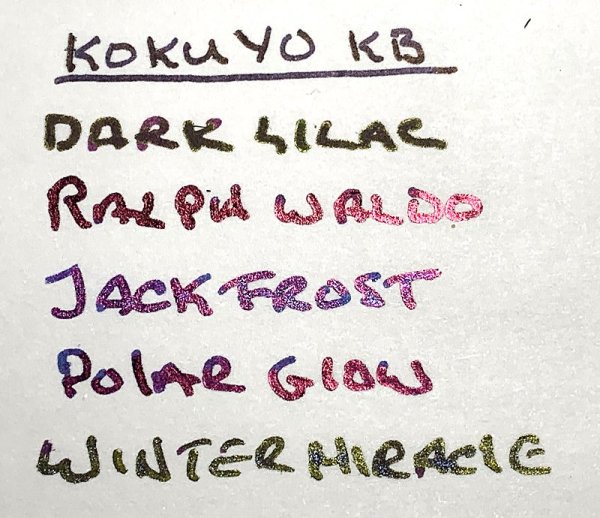 KOKUYO KB
DARK LILAC
RALPH WALDO
JACK FROST
POLAR GLOW
WINTER MIRACLE